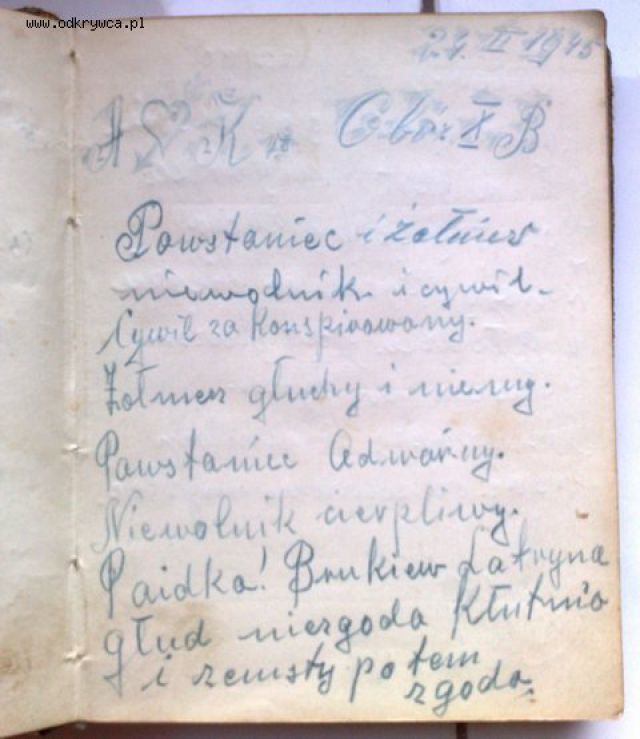 www.odkrywca.pl
24. II 1945
A K Obr. X B
Powstaniec i żołmierz
niewolnik i cywil.
Cywil za Konspirowany.
Żołmierz głuchy i niemy.
Powstaniec Odważny.
Niewolnik cierpliwy.
Paidka! Brukiew Latryna
głud niezgoda Kłutnia
i zemsty potem
zgoda.